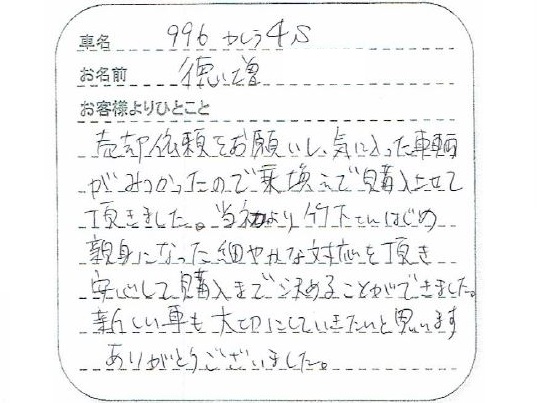 車名 996 カレラ4S
お名前 徳増
お客様よりひとこと
売却依頼をお願いし、気に入った車輌
がみつかったので乗換えで購入させて
頂きました。当初より竹下さんはじめ
親身になった細やかな対応を頂き
安心して購入まで決めることができました。
新しい車も大切にしていきたいと思います
ありがとうございました。